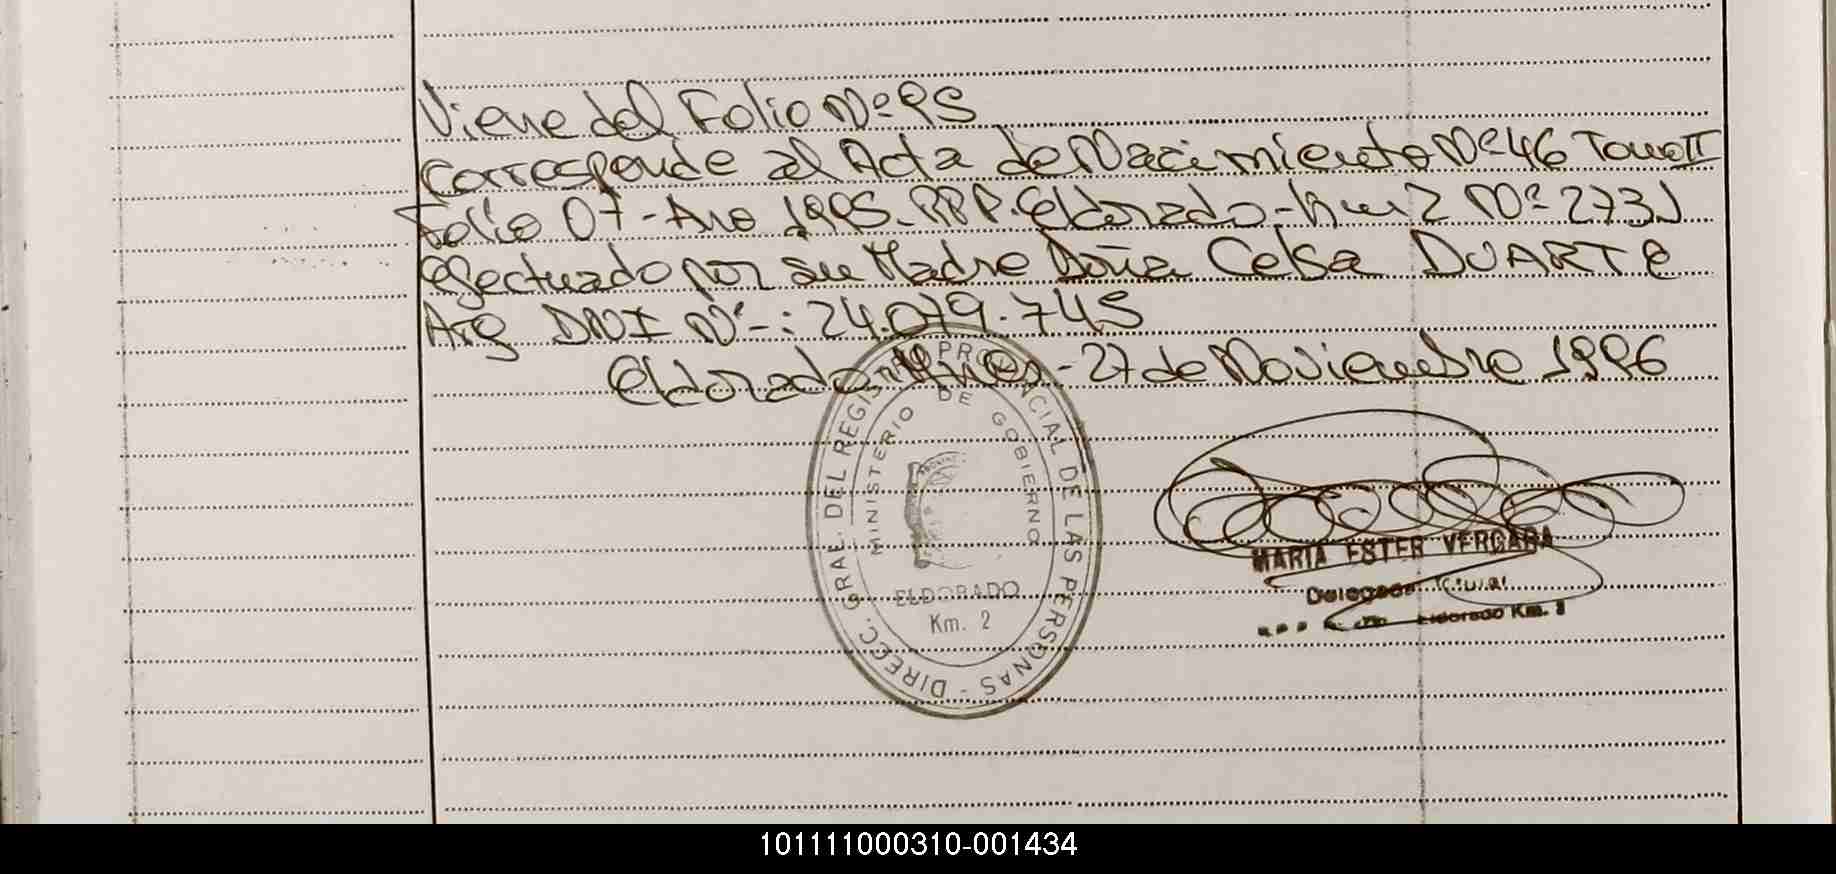 Viene del Folio Nº 95
Corresponde al Acta de Nacimiento Nº 46 Tomo II
Folio 07 - Año 1995 - RPP. Eldorado - km 2 Nº 2731
efectuado por su Madre Doña Celsa DUARTE
Arg DNI Nº -: 24.079.745
Eldorado - Mnes - 27 de Noviembre 1996
DIRECC. GRAL. DEL REGIS PROVINCIAL DE LAS PERSONAS -
MINISTERIO DE GOBIERNO
ELDORADO
Km. 2
MARIA ESTER VERGARA
Delegada
Eldorado Km. 2
101111000310-001434